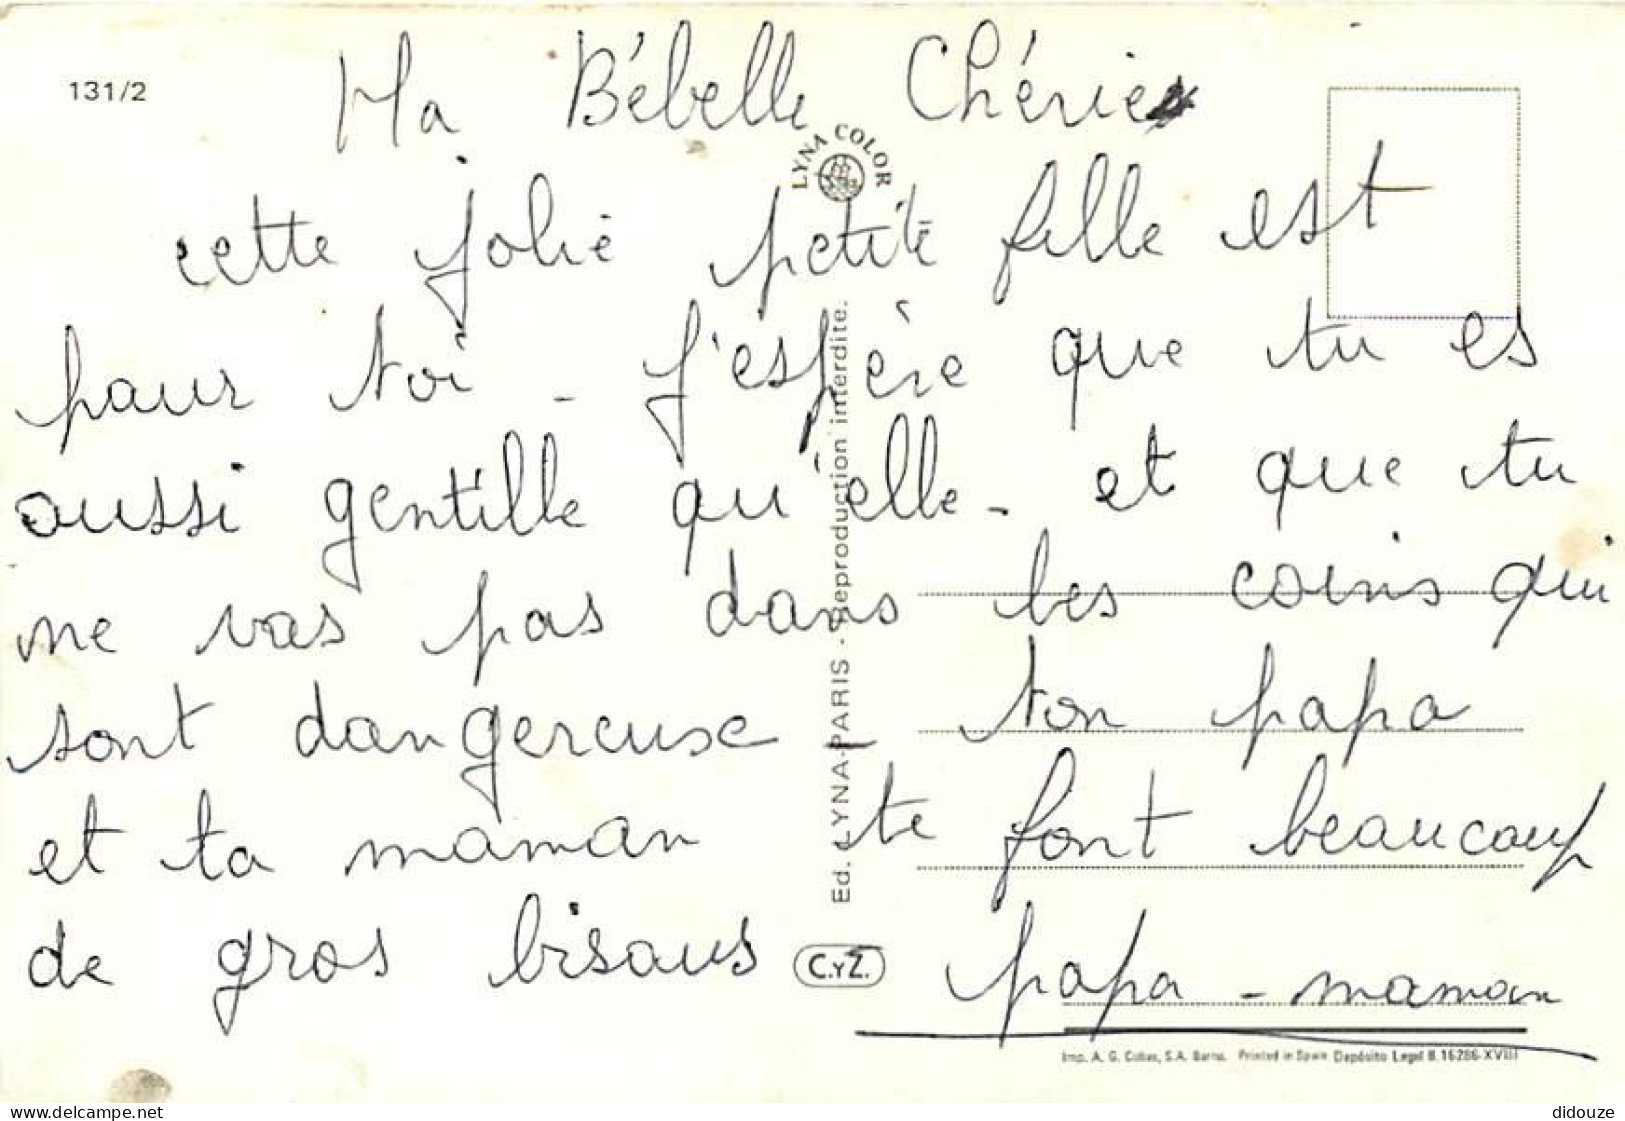 131/2
Ma Bébelle Chérie
LYNA COLOR
cette jolie petite fille est
pour toi - j'espère que tu es
aussi gentille qu'elle - et que tu
ne vas pas dans les coins qui
sont dangereuse - ton papa
et ta maman te font beaucoup
de gros bisous
papa - maman
Ed. LYNA-PARIS - Reproduction interdite.
C.YZ.
Imp. A. G. Cobas, S.A. Barna. Printed in Spain Depósito Legal B. 16286-XVIII
www.delcampe.net
didouze